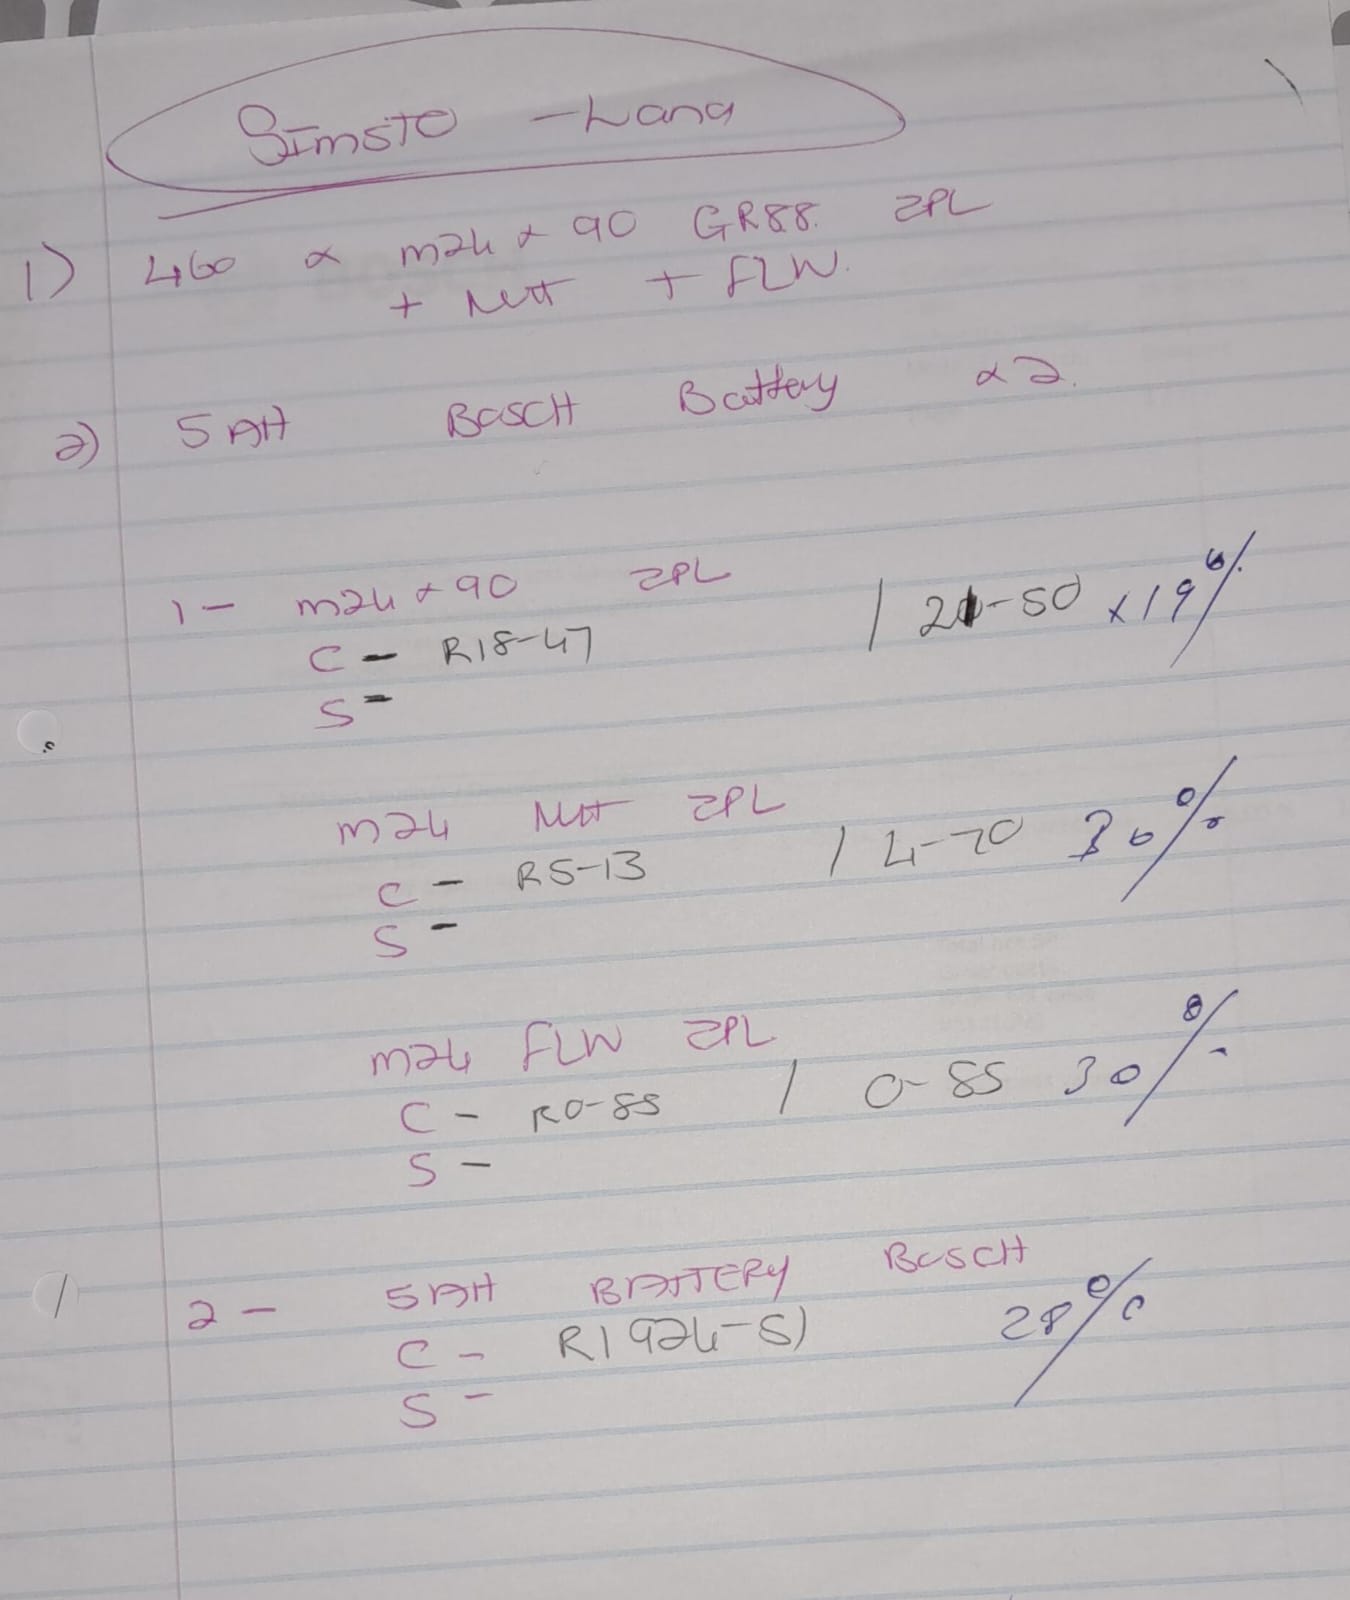 SImSTO - Lana
1) 460 x m24 x 90 GR8.8. ZPL
+ Nutt + FLW.
2) 5 AH BOSCH Battery x 2.
1 - m24 x 90 ZPL
C - R18-47 / 21-50 x 19%
S -
m24 Nut ZPL
C - R5-13 / 4-70 30%
S -
m24 FLW ZPL
C - R0-85 / 0-85 30%
S -
2 - 5AH BATTERY BOSCH
C - R1924-51 28%
S -